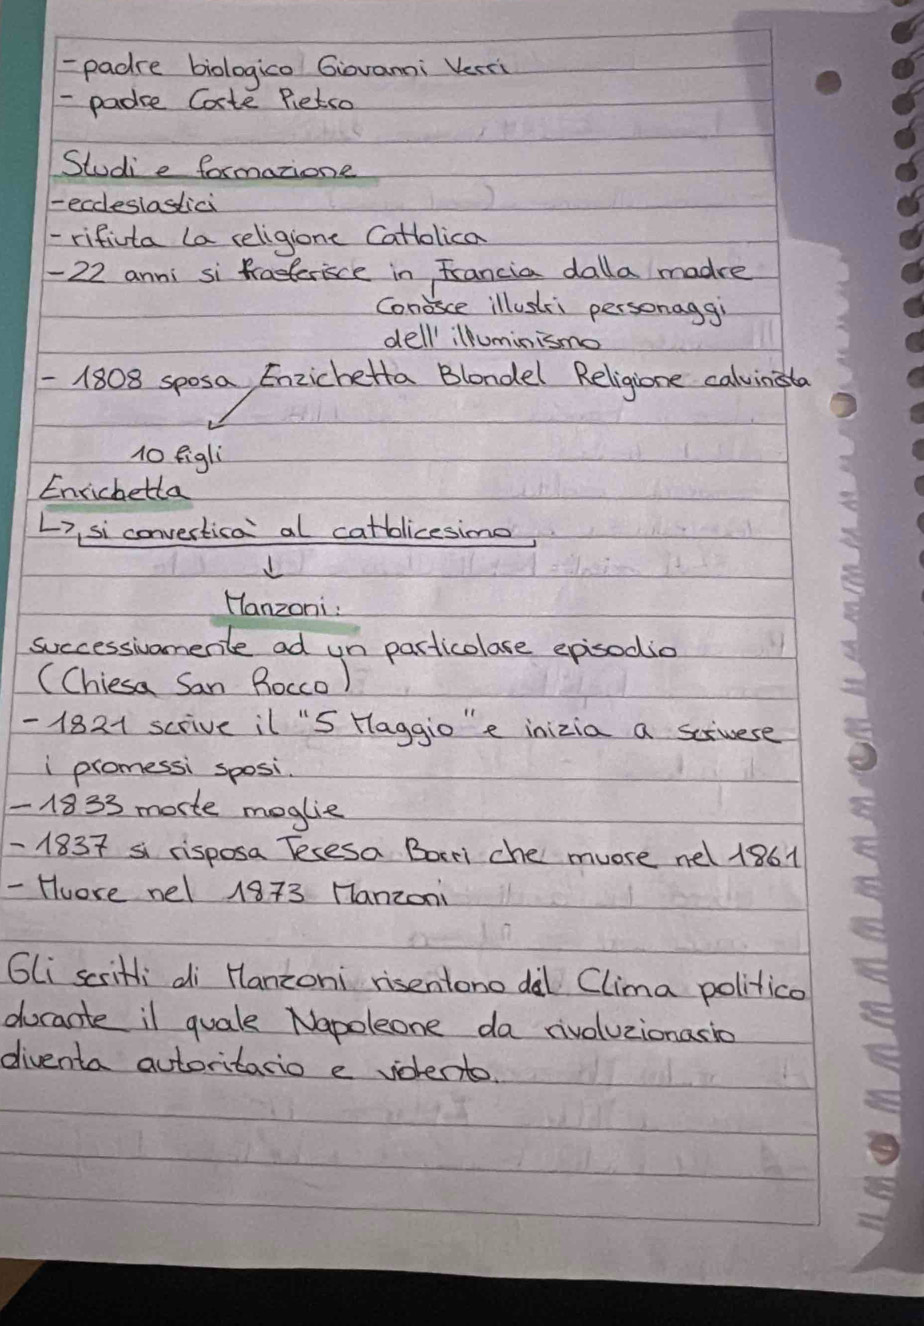 - padre biologico Giovanni Verri
- padre Corte Pietro
Studi e formazione
- ecclesiastici
- rifiuta la religione Cattolica
- 22 anni si trasferisce in Francia dalla madre
Conosce illustri personaggi
dell'illuminismo
- 1808 sposa Enrichetta Blondel Religione calvinista
10 figli
Enrichetta
↳ si convertirà al cattolicesimo
↓
Manzoni:
successivamente ad un particolare episodio
(Chiesa San Rocco)
- 1821 scrive il "5 Maggio" e inizia a scrivere
i promessi sposi.
- 1833 morte moglie
- 1837 si risposa Teresa Borri che muore nel 1861
- Muore nel 1873 Manzoni
Gli scritti di Manzoni risentono del Clima politico
durante il quale Napoleone da rivoluzionario
diventa autoritario e violento.